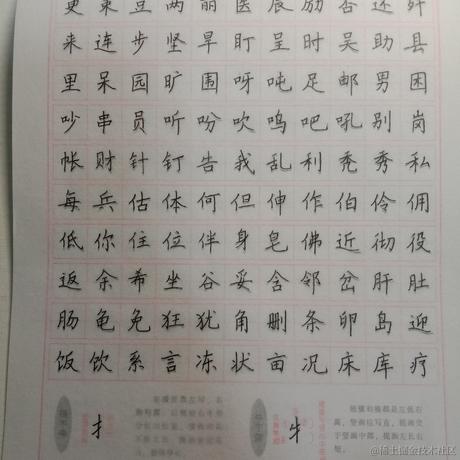 更 束 豆 两 丽 医 辰 励 否 还 歼
来 连 步 坚 旱 盯 呈 时 吴 助 县
里 呆 园 旷 围 呀 吨 足 邮 男 困
吵 串 员 听 吩 吹 鸣 吧 吼 别 岗
帐 财 针 钉 告 我 乱 利 秃 秀 私
每 兵 估 体 何 但 伸 作 伯 伶 佣
低 你 住 位 伴 身 皂 佛 近 彻 役
返 余 希 坐 谷 妥 含 邻 岔 肝 肚
肠 龟 免 狂 犹 角 删 条 卵 岛 迎
饭 饮 系 言 冻 状 亩 况 床 库 疗
扌
牜
@稀土掘金技术社区